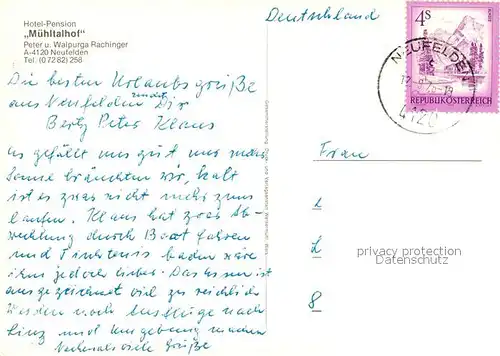 Hotel-Pension
„Mühltalhof"
Peter u. Walpurga Rachinger
A-4120 Neufelden
Tel. (0 72 82) 258
Deutschland
4 S
REPUBLIK ÖSTERREICH
NEUFELDEN
4120
Die besten Urlaubsgrüße
aus Neufelden Dir
sendet
Peter Klaus
Es gefällt uns gut nur mehr
Sonne bräuchten wir, kalt
ist es zwar nicht mehr zum
laufen. Klaus hat zwar Ab-
wechslung durch Boot fahren
und Tischtennis baden wäre
ihm jedoch lieber. Das Essen ist
ausgezeichnet viel zu reichlich
Werden noch Ausflüge nach
Linz und Umgebung machen
Nochmals viele Grüße
Frau
privacy protection
Datenschutz